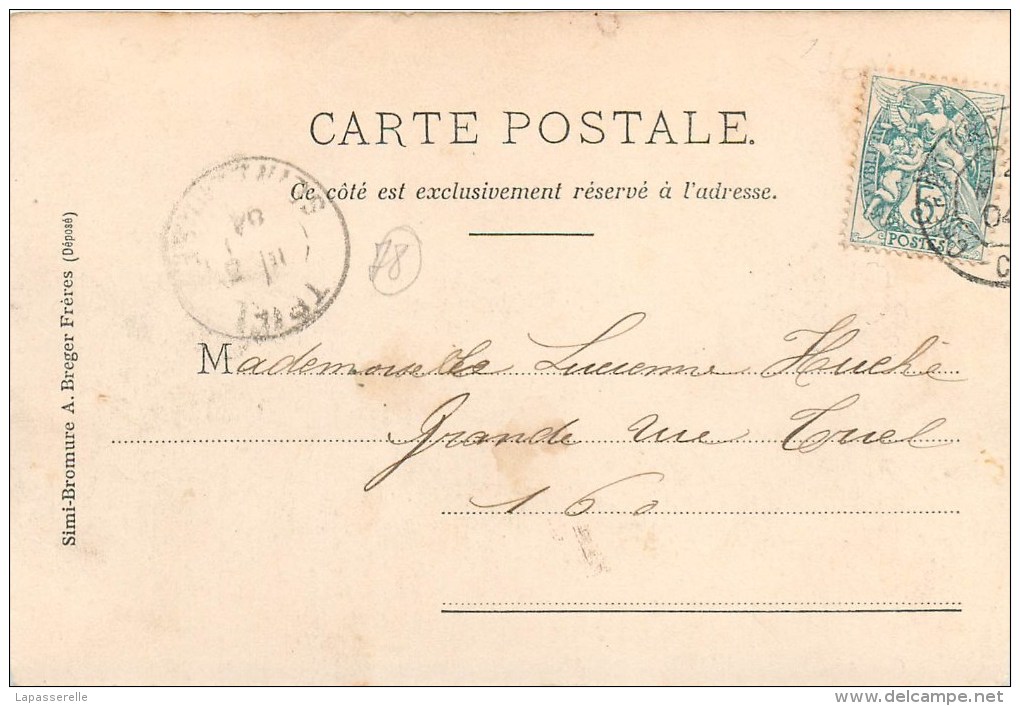 CARTE POSTALE.
Ce côté est exclusivement réservé à l'adresse.
POSTES
04
78
TRIEL
04
Mademoiselle Lucienne Huché
Grande rue Triel
160
Simi-Bromure A. Breger Frères (Déposé)
Lapasserelle
www.delcampe.net